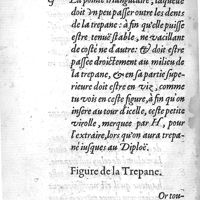 G La pointe triangulaire, laquelle
doit vn peu passer outre les dents
de la trepane: à fin qu'elle puisse
estre tenuë stable, ne vacillant
de costé ne d'autre: & doit estre
passee droictement au milieu de
la trepane, & en sa partie supe-
rieure doit estre en viz, comme
tu vois en ceste figure, à fin qu'on
insere au tour d'icelle, ceste petite
virolle, merquee par H, pour
l'extraire, lors qu'on aura trepa-
né iusques au Diploë.
Figure de la Trepane.
Or tou-